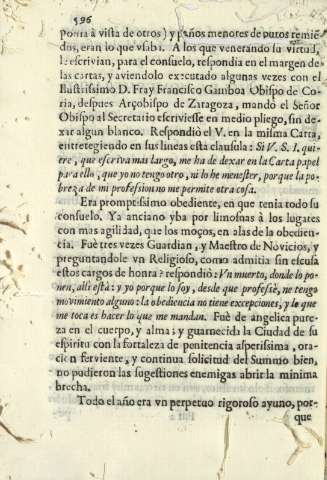 596
ponia à vista de otros) y paños menores de puros remiē-
dos, eran lo que vsaba. A los que venerando su virtud,
le escrivian, para el consuelo, respondia en el margen de
las cartas, y aviendolo executado algunas vezes con el
Ilustrissimo D. Fray Francisco Gamboa Obispo de Co-
ria, despues Arçobispo de Zaragoza, mandò el Señor
Obispo al Secretario escriviesse en medio pliego, sin de-
xar algun blanco. Respondiò el V. en la misma Carta,
entretegiendo en sus lineas esta clausula: Si V. S. I. qui-
ere, que escriva mas largo, me ha de dexar en la Carta papel
para ello, que yo no tengo otro, ni lo he menester, porque la po-
breza de mi profession no me permite otra cosa.
Era promptissimo obediente, en que tenia todo su
consuelo. Ya anciano yba por limosnas à los lugares
con mas agilidad, que los moços, en alas de la obedien-
cia. Fuè tres vezes Guardian, y Maestro de Novicios, y
preguntandole vn Religioso, como admitia sin escusa
estos cargos de honra? respondiò: Vn muerto, donde lo po-
nen, alli està: y yo porque lo soy, desde que professè, no tengo
movimiento alguno: la obediencia no tiene excepciones, y lo que
me toca es hacer lo que me mandan. Fuè de angelica pure-
za en el cuerpo, y alma; y guarnecida la Ciudad de su
espiritu con la fortaleza de penitencia asperissima, ora-
cion ferviente, y continua solicitud del Summo bien,
no pudieron las sugestiones enemigas abrir la minima
brecha.
Todo el año era vn perpetuo rigoroso ayuno, por-
que